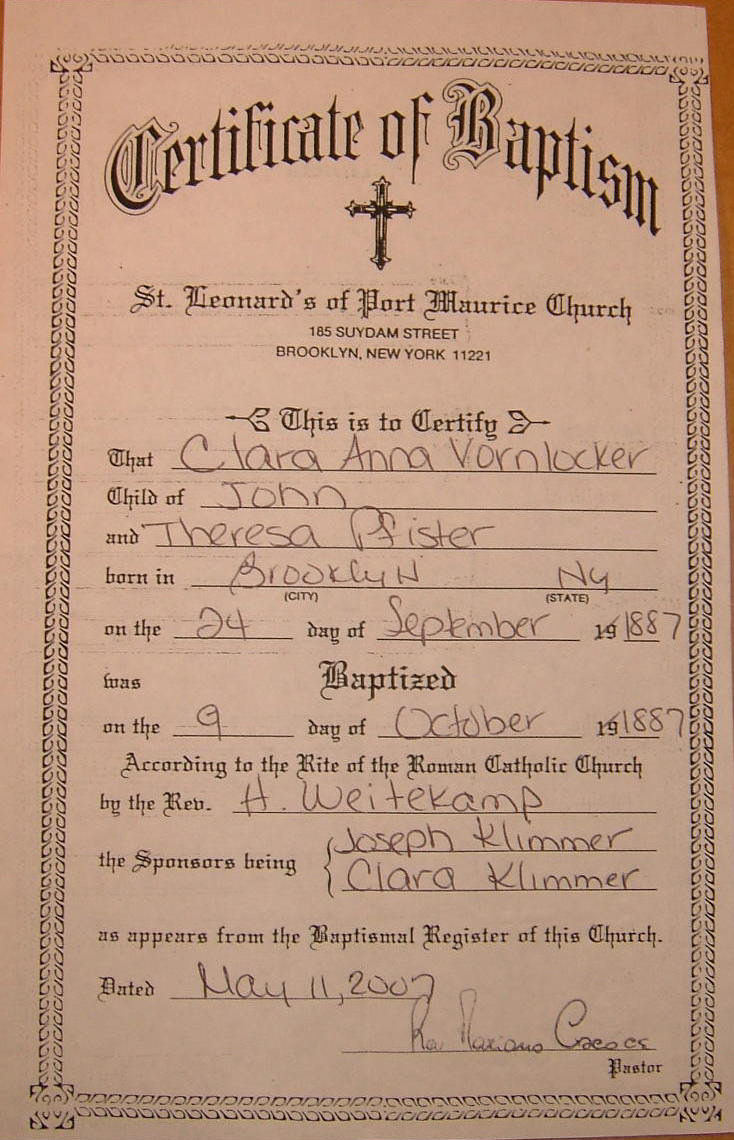 Certificate of Baptism
St. Leonard's of Port Maurice Church
185 SUYDAM STREET
BROOKLYN, NEW YORK 11221
This is to Certify
That Clara Anna Vornlocker
Child of John
and Theresa Pfister
born in Brooklyn Ny
(CITY) (STATE)
on the 24 day of September 19 1887
was Baptized
on the 9 day of October 19 1887
According to the Rite of the Roman Catholic Church
by the Rev. H. Weitekamp
Joseph Klimmer
the Sponsors being
Clara Klimmer
as appears from the Baptismal Register of this Church.
Dated May 11, 2007
Rev Mariano
Pastor